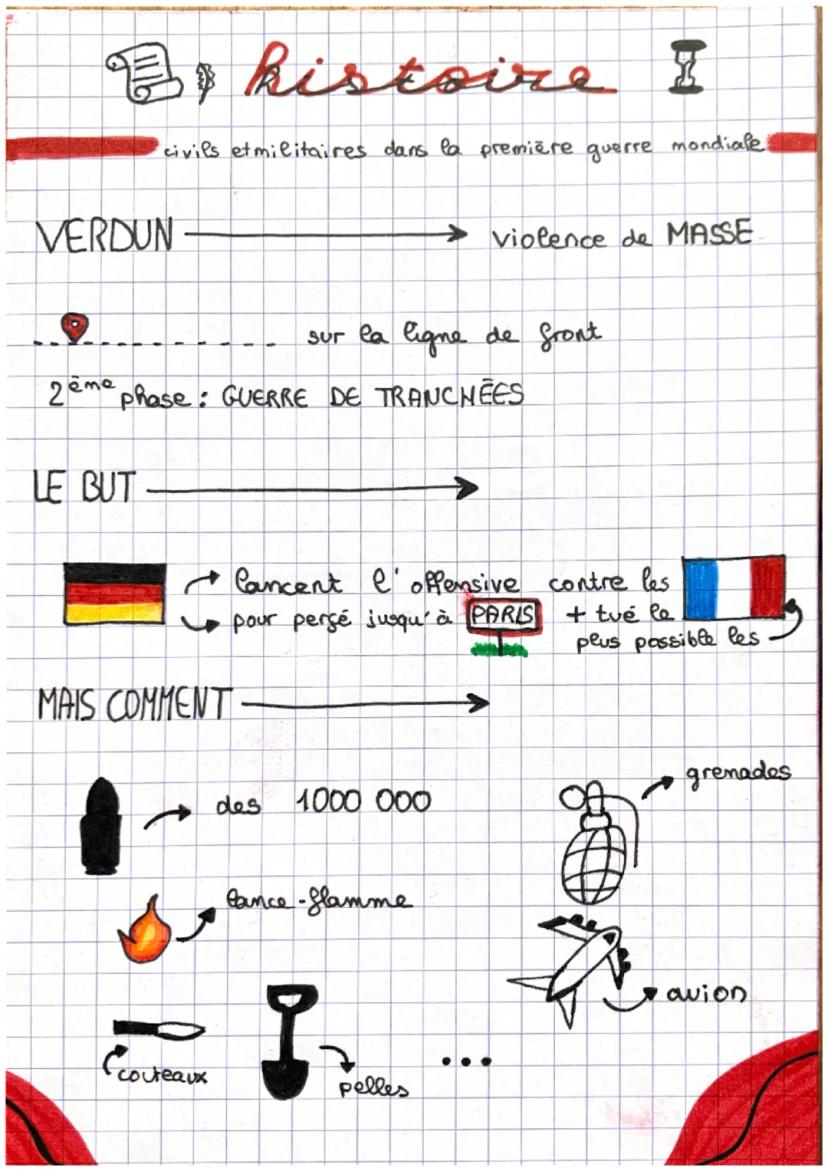 histoire
civils et militaires dans la première guerre mondiale
VERDUN violence de MASSE
sur la ligne de front
2ème phase : GUERRE DE TRANCHÉES
LE BUT
lancent l'offensive contre les
pour perçé jusqu'à PARIS + tué le
plus possible les
MAIS COMMENT
grenades
des 1000 000
lance-flamme
avion
couteaux
pelles
...